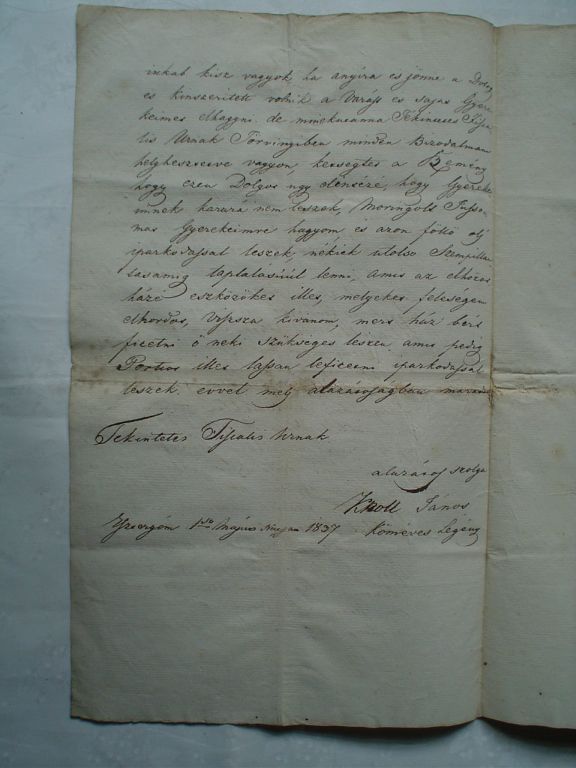 inkab kisz vagyok, ha anyira es jönne a Dolog
es kinszeritett volnik a Varass es sajas Gyere
keimes elhagyni. de minekutanna Tekinteses Fisha
lis Urnak Törvingiben minden Bizodalmam
helyheszesve vagyon, kecsegtes a Remény
hogy ezen Dolgos ugy elenséré, hogy Gyereke
imnek karará nem leszek, Moringols Jusso
mas Gyerekeimre hagyom es azon fölló olj
iparkodassal leszek, nékiek utolso Szempillan
tasamig taplalasirúl lenni, amis az elhozos
házi eszközökes illes, melyekes feleségem
elhordos, Vissza kivanom, mers ház bers
ficetni ő neki szükséges leszen amis pedig
Portios illes lassan leficetni iparkodassal
leszek. evvel mely alazásossagban maradok
Tekintetes Fiscalis Urnak
alazásos szolga
Kroll János
Eszergom 1ső Május 1837 Kömêves Legény